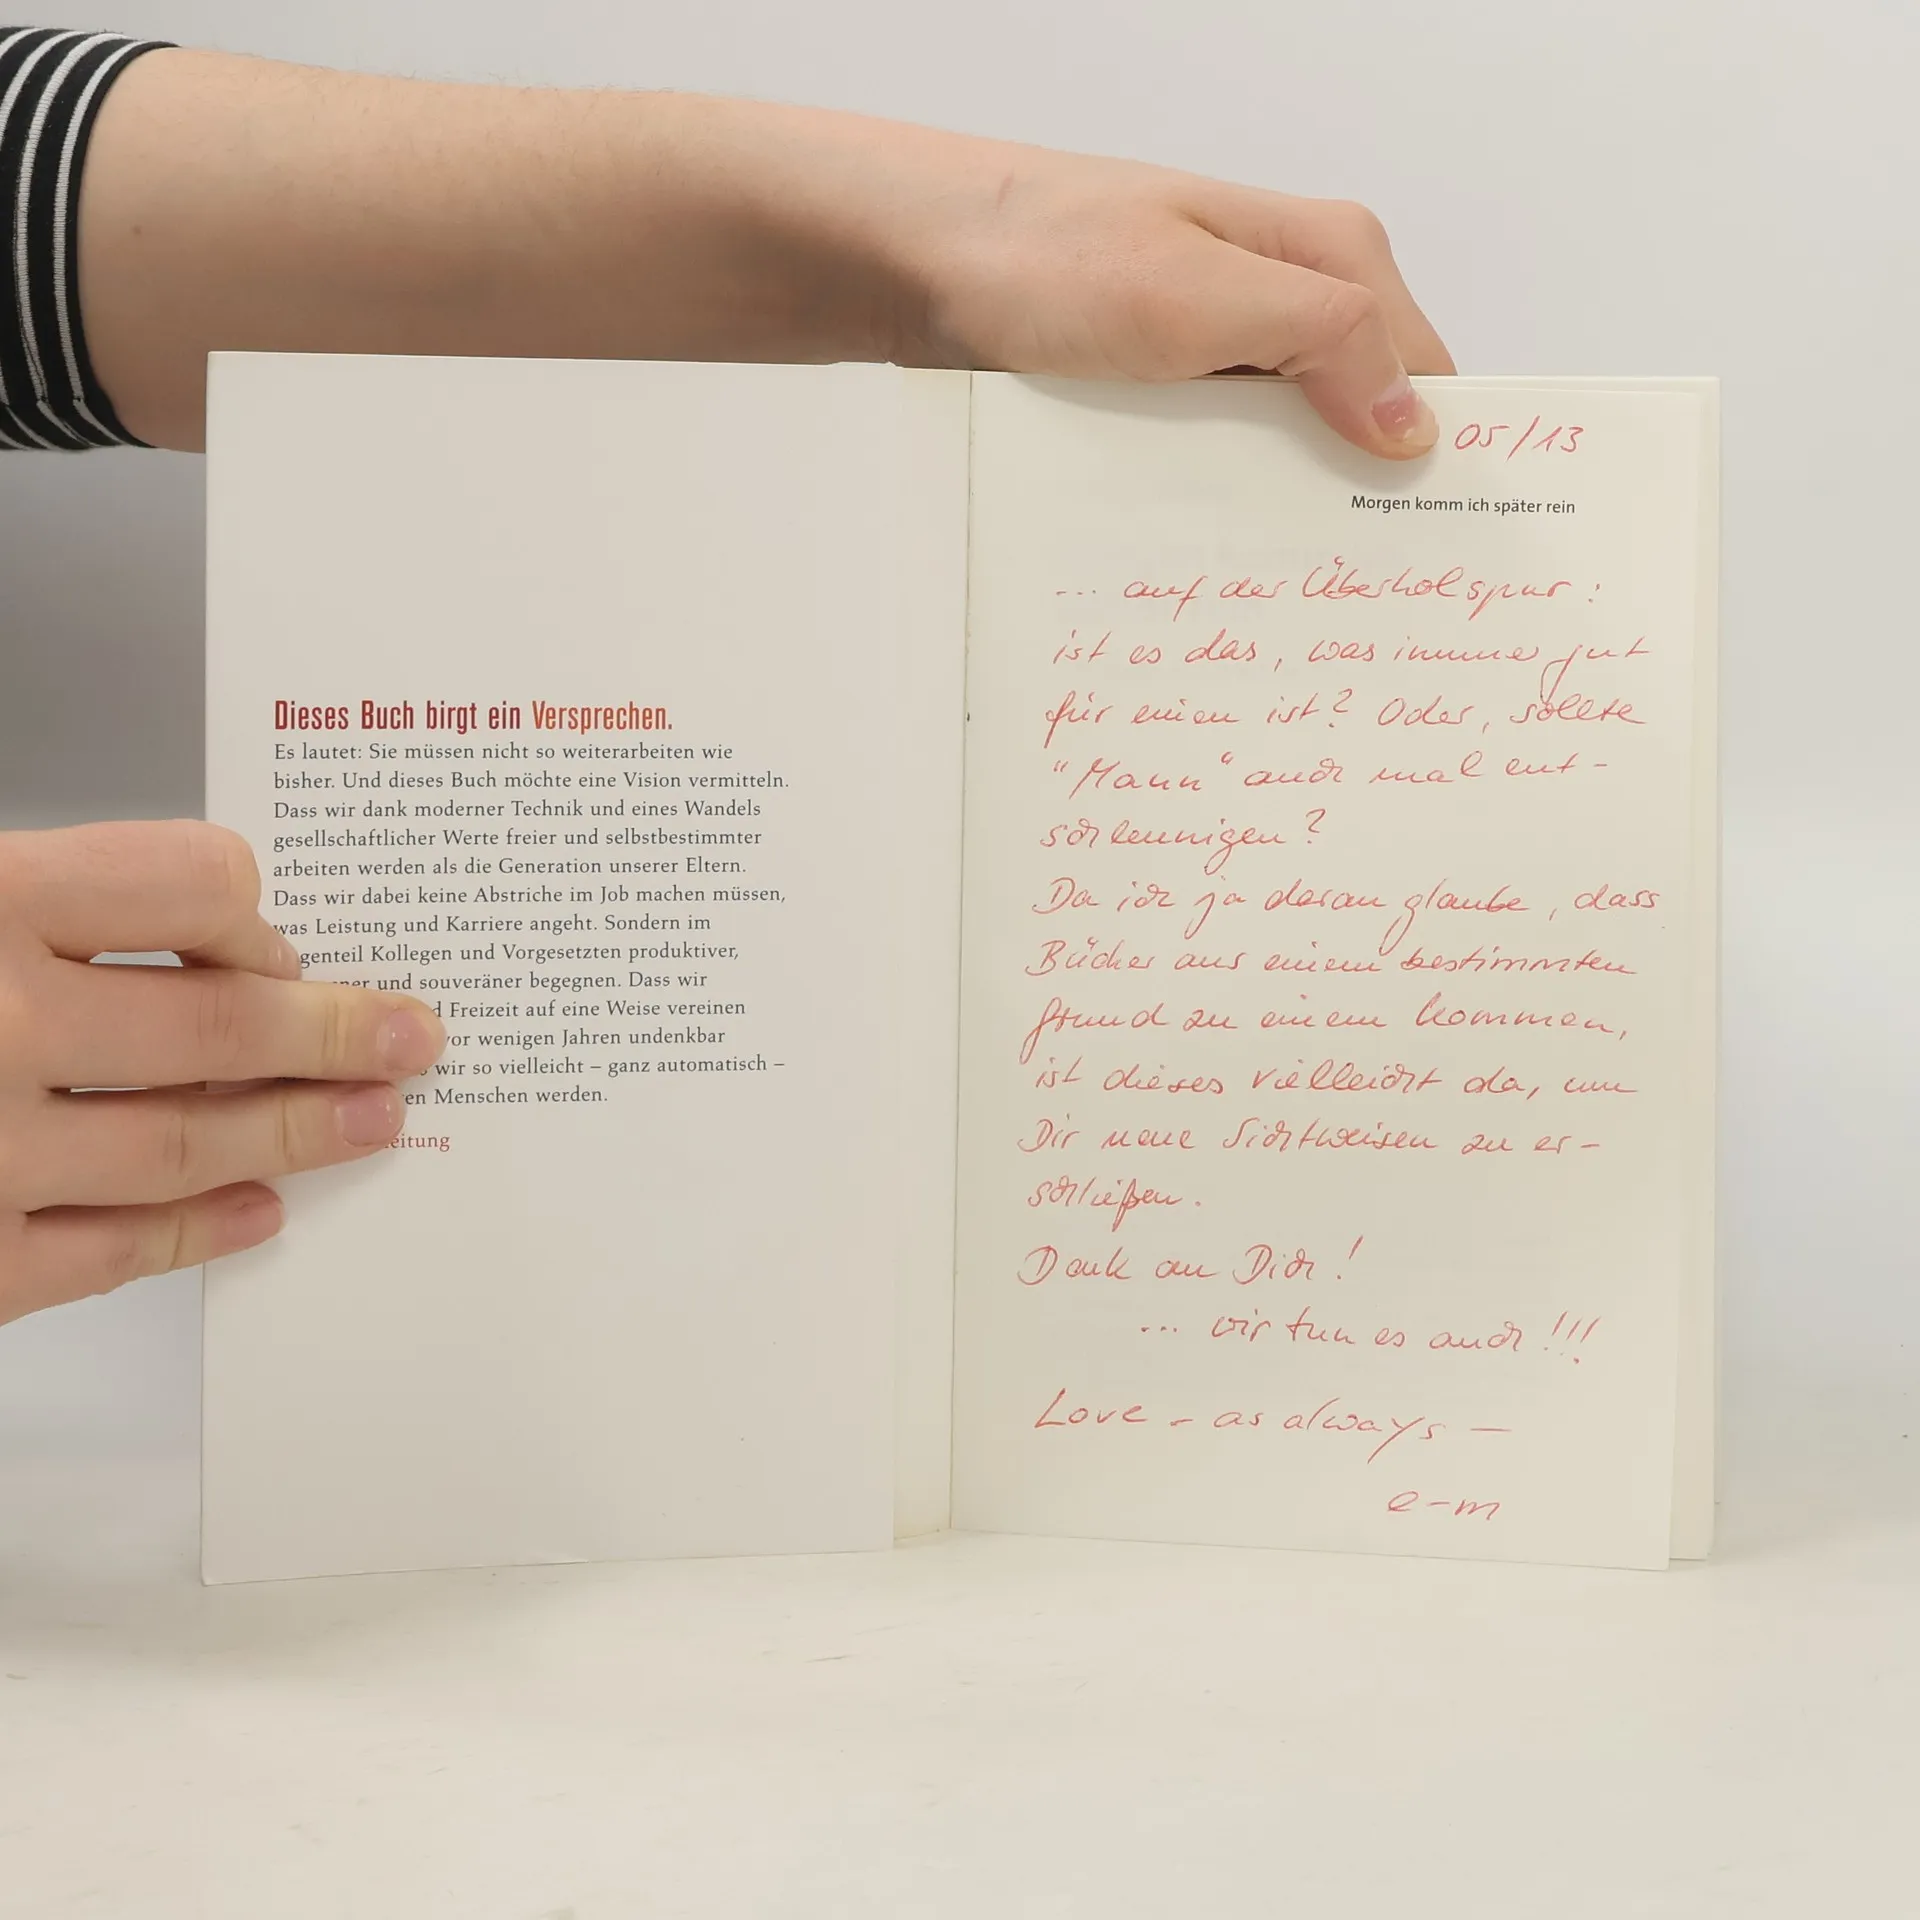 Dieses Buch birgt ein Versprechen.
Es lautet: Sie müssen nicht so weiterarbeiten wie
bisher. Und dieses Buch möchte eine Vision vermitteln.
Dass wir dank moderner Technik und eines Wandels
gesellschaftlicher Werte freier und selbstbestimmter
arbeiten werden als die Generation unserer Eltern.
Dass wir dabei keine Abstriche im Job machen müssen,
was Leistung und Karriere angeht. Sondern im
genteil Kollegen und Vorgesetzten produktiver,
ner und souveräner begegnen. Dass wir
d Freizeit auf eine Weise vereinen
vor wenigen Jahren undenkbar
wir so vielleicht – ganz automatisch –
en Menschen werden.
eitung
05/13
Morgen komm ich später rein
... auf der Überholspur:
ist es das, was immer gut
für einen ist? Oder, sollte
"Mann" auch mal ent-
schleunigen?
Da ich ja daran glaube, dass
Bücher aus einem bestimmten
Grund zu einem kommen,
ist dieses vielleicht da, um
Dir neue Sichtweisen zu er-
schließen.
Dank an Dich!
... wir tun es auch!!!
Love - as always —
e-m